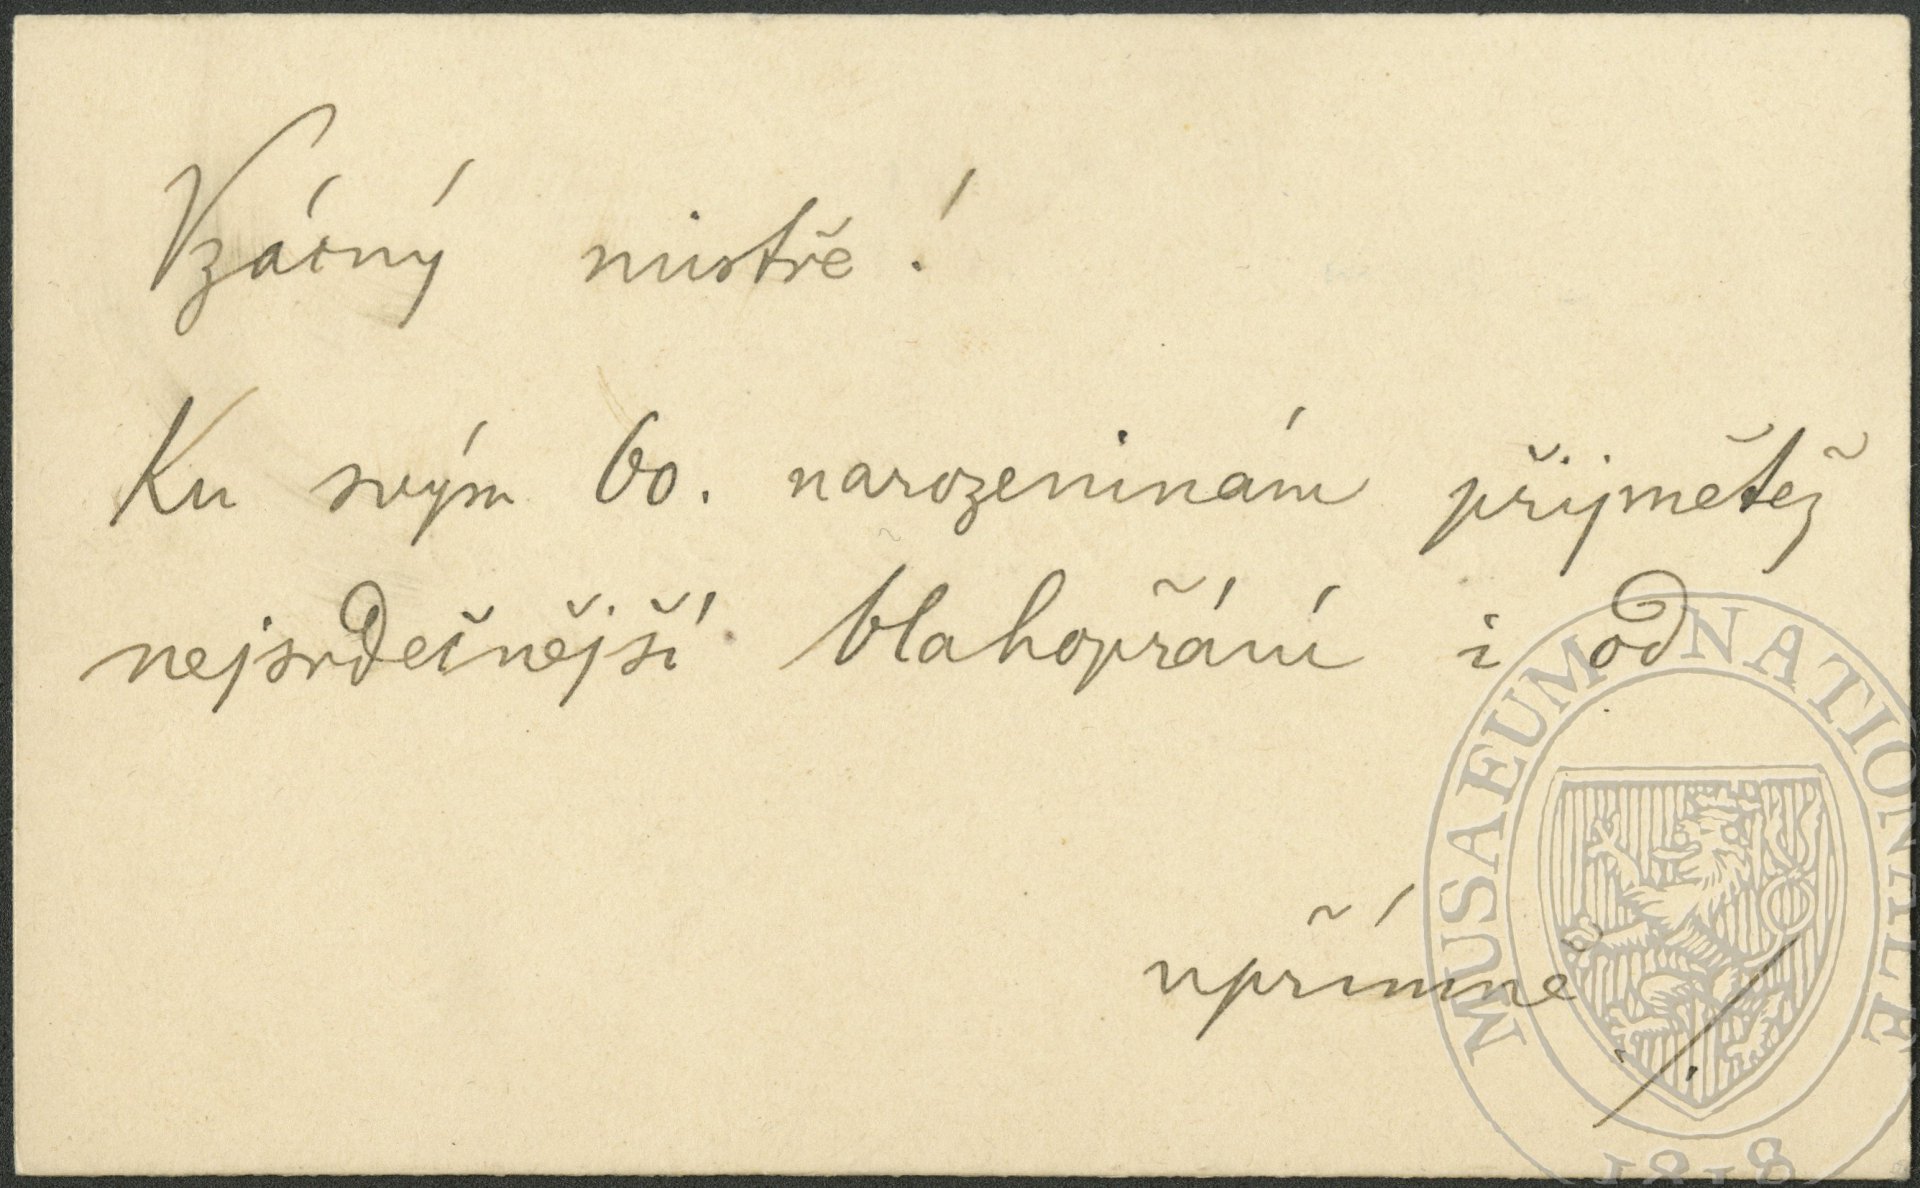 Vzácný mistře!
Ku svým 60. narozeninám přijmětež
nejsrdečnější blahopřání i od
upřímně
MUSAEUM NATIONALE
1818